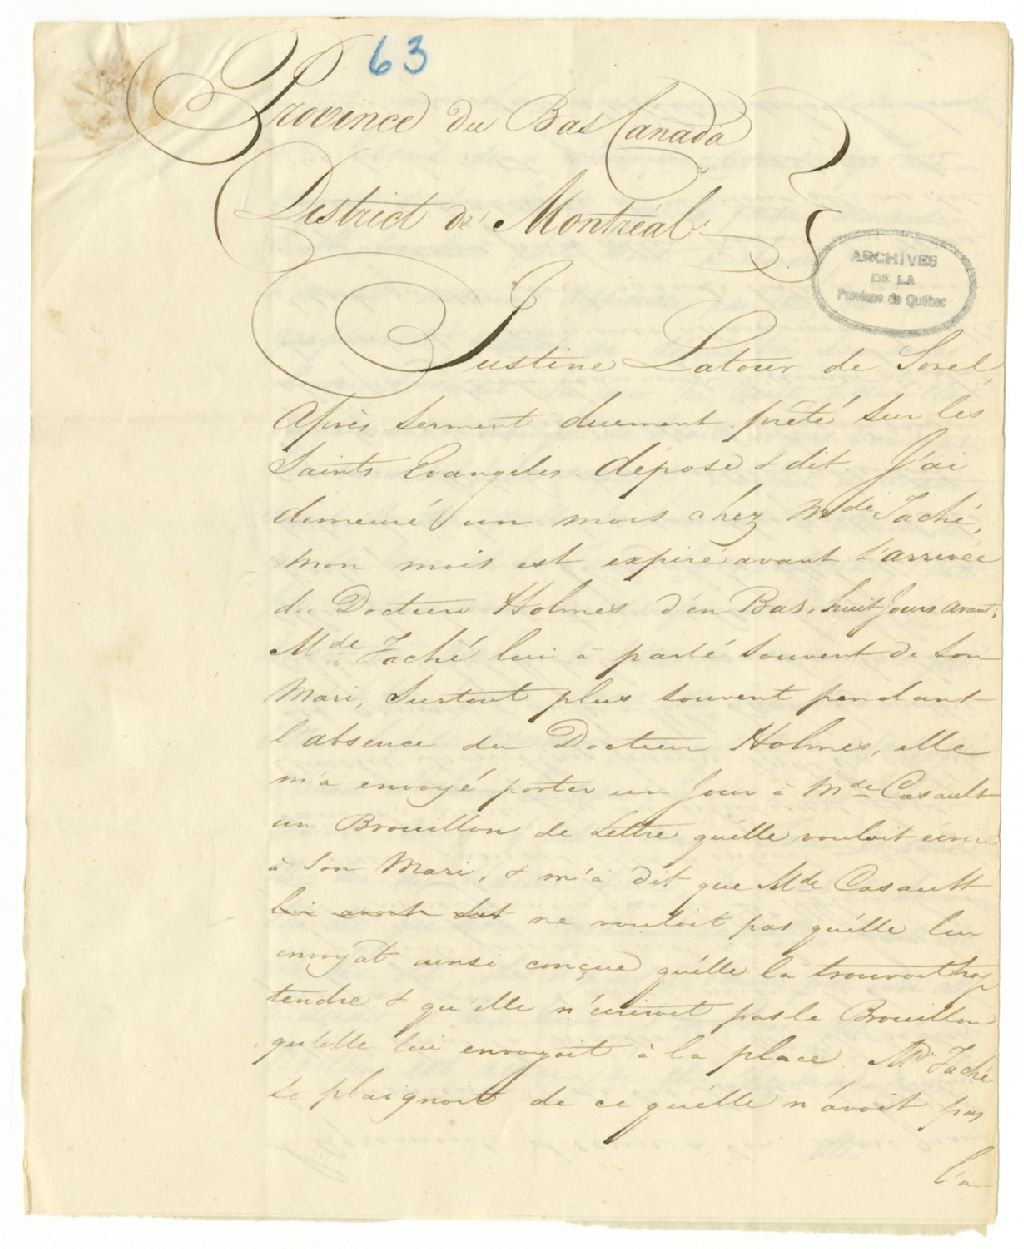 63
Province du Bas Canada
District de Montréal
ARCHIVES
DE LA
Province de Québec
Justine Latour de Sorel
Après serment duement prêté sur les
Saints Evangiles dépose & dit. J'ai
demeuré un mois chez Mde Taché,
mon mois est expiré avant l'arrivée
du Docteur Holmes d'en Bas, huit Jours avant,
Mde Taché lui à parlé souvent de son
Mari, Surtout plus souvent pendant
l'absence du Docteur Holmes, elle
m'a envoyé porter un Jour à Mde Casault
un Brouillon de Lettre qu'elle vouloit écrire
à Son Mari, & m'à dit que Mde Casault
lui avoit dit ne vouloit pas qu'elle lui
envoyat ainsi conçue qu'elle la trouvoit trop
tendre & qu'elle n'écrivoit pas le Brouillon
qu'elle lui envoyoit à la place. Md Taché
se plaignoit de ce qu'elle n'avoit pas
l'a